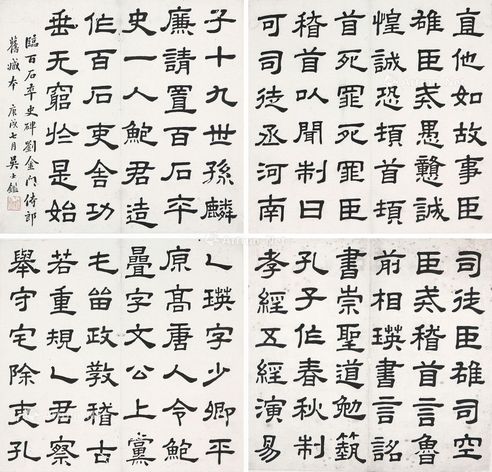 司徒臣雄司空
臣戒稽首言魯
前相瑛書言詔
書崇聖道勉蓺
孔子作春秋制
孝經五經演易
直他如故事臣
雄臣戒愚戇誠
惶誠恐頓首頓
首死罪死罪臣
稽首以聞制曰
可司徒丞河南
乙瑛字少卿平
原高唐人令鮑
疊字文公上黨
屯留政教稽古
若重規乙君察
舉守宅除吏孔
子十九世孫麟
廉請置百石卒
史一人鮑君造
作百石吏舍功
垂无窮於是始
臨百石卒史碑劉金門侍郎
舊藏本 庚戌七月吳士鑑